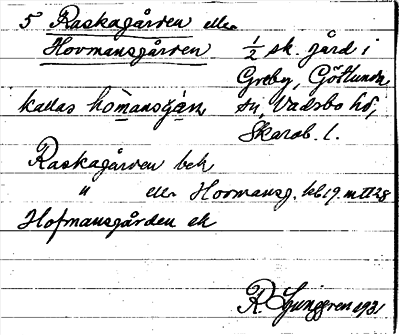 5 Raskagården eller
Hovmansgården 1/2 sk. gård i
Greby, Götlunda
kallas homansgån sn, Vadsbo hd,
Skarab. l.
Raskagården beb
" eller Hovmansg. kb 19. m II 28
Hofmansgården ek
R. Ljunggren 1931